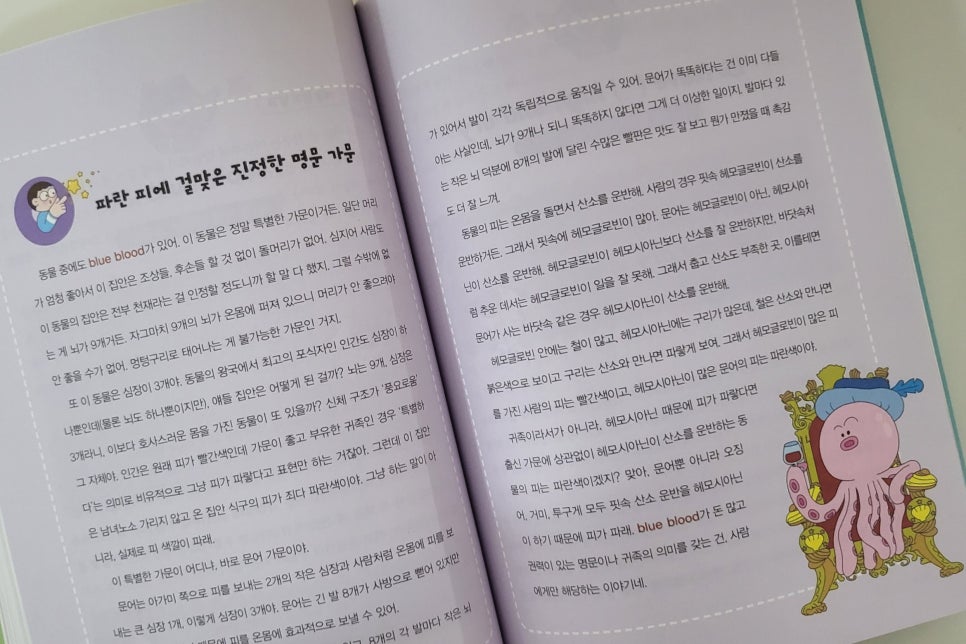 파란 피에 걸맞은 진정한 명문 가문
동물 중에도 blue blood가 있어. 이 동물은 정말 특별한 가문이거든. 일단 머리
가 엄청 좋아서 이 집안은 조상들, 후손들 할 것 없이 돌머리가 없어. 심지어 사람도
이 동물의 집안은 전부 천재라는 걸 인정할 정도니까 할 말 다 했지. 그럴 수밖에 없
는 게 뇌가 9개거든. 자그마치 9개의 뇌가 온몸에 퍼져 있으니 머리가 안 좋으려야
안 좋을 수가 없어. 멍텅구리로 태어나는 게 불가능한 가문인 거지.
또 이 동물은 심장이 3개야. 동물의 왕국에서 최고의 포식자인 인간도 심장이 하
나뿐인데(물론 뇌도 하나뿐이지만), 얘들 집안은 어떻게 된 걸까? 뇌는 9개, 심장은
3개라니. 이보다 호사스러운 몸을 가진 동물이 또 있을까? 신체 구조가 '풍요로움'
그 자체야. 인간은 원래 피가 빨간색인데 가문이 좋고 부유한 귀족인 경우 '특별하
다'는 의미로 비유적으로 그냥 피가 파랗다고 표현만 하는 거잖아. 그런데 이 집안
은 남녀노소 가리지 않고 온 집안 식구의 피가 죄다 파란색이야. 그냥 하는 말이 아
니라, 실제로 피 색깔이 파래.
이 특별한 가문이 어디냐, 바로 문어 가문이야.
문어는 아가미 쪽으로 피를 보내는 2개의 작은 심장과 사람처럼 온몸에 피를 보
내는 큰 심장 1개, 이렇게 심장이 3개야. 문어는 긴 발 8개가 사방으로 뻗어 있지만
때문에 피를 온몸에 효과적으로 보낼 수 있어.
8개의 각 발마다 작은 뇌
가 있어서 발이 각각 독립적으로 움직일 수 있어. 문어가 똑똑하다는 건 이미 다들
아는 사실인데, 뇌가 9개나 되니 똑똑하지 않다면 그게 더 이상한 일이지. 발마다 있
는 작은 뇌 덕분에 8개의 발에 달린 수많은 빨판은 맛도 잘 보고 뭔가 만졌을 때 촉감
도 더 잘 느껴.
동물의 피는 온몸을 돌면서 산소를 운반해. 사람의 경우 핏속 헤모글로빈이 산소를
운반하거든. 그래서 핏속에 헤모글로빈이 많아. 문어는 헤모글로빈이 아닌, 헤모시아
닌이 산소를 운반해. 헤모글로빈이 헤모시아닌보다 산소를 잘 운반하지만, 바닷속처
럼 추운 데서는 헤모글로빈이 일을 잘 못해. 그래서 춥고 산소도 부족한 곳, 이를테면
문어가 사는 바닷속 같은 경우 헤모시아닌이 산소를 운반해.
헤모글로빈 안에는 철이 많고, 헤모시아닌에는 구리가 많은데, 철은 산소와 만나면
붉은색으로 보이고 구리는 산소와 만나면 파랗게 보여. 그래서 헤모글로빈이 많은 피
를 가진 사람의 피는 빨간색이고, 헤모시아닌이 많은 문어의 피는 파란색이야.
귀족이라서가 아니라, 헤모시아닌 때문에 피가 파랗다면
출신 가문에 상관없이 헤모시아닌이 산소를 운반하는 동
물의 피는 파란색이겠지? 맞아. 문어뿐 아니라 오징
어, 거미, 투구게 모두 핏속 산소 운반을 헤모시아닌
이 하기 때문에 피가 파래. blue blood가 돈 많고
권력이 있는 명문이나 귀족의 의미를 갖는 건, 사람
에게만 해당하는 이야기네.